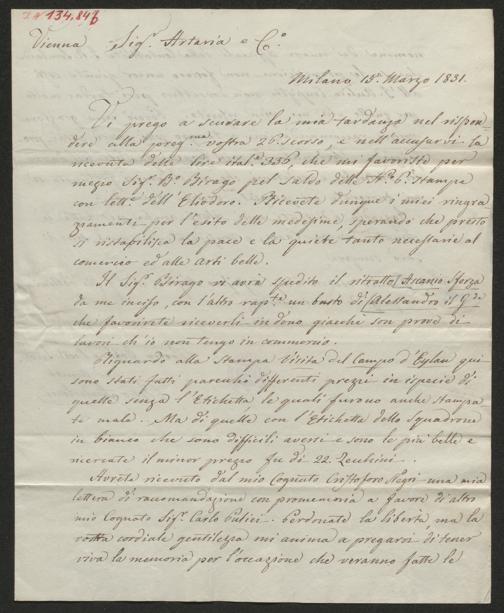 134.846
Vienna Sig.ri Artaria e C.o
Milano 15. Marzo 1831.
Vi prego a scusare la mia tardanza nel rispon-
dere alla preg.ma vostra 26. scorso, e nell'accusarvi la
ricevuta delle lire ital.e 336, che mi favoriste per
mezzo Sig.r B.o Birago pel saldo delle N.o 6. Stampe
con lett.a dell'Eliodoro. Ricevete dunque i miei ringra
ziamenti per l'esito delle medesime, sperando che presto
si ristabilisca la pace e la quiete tanto necessarie al
comercio ed alle Arti belle.
Il Sig.r Birago vi avrà spedito il ritratto Ascanio Sforza
da me inciso, con l'altro rap.te un busto di Alessandro il G.de
che favorirete riceverli in dono giacchè son prove di
lavori ch'io non tengo in commercio.
Riguardo alla Stampa Visita del Campo d'Eylau qui
sono stati fatti parecchi differenti prezzi in ispecie di
quelle senza l'Etichetta le quali furono anche stampa
te male. Ma di quelle con l'Etichetta dello Squadrone
in bianco che sono difficili aversi e sono le più belle e
ricercate il minor prezzo fu di 22. Zecchini.
Avrete ricevuto dal mio Cognato Cristoforo Negri una mia
lettera di racomandazione con promemoria a favore di altro
mio Cognato Sig.r Carlo . Perdonate la libertà, ma la
vostra cordiale gentilezza mi anima a pregarvi di tener
viva la memoria per l'occazione che veranno fatte le